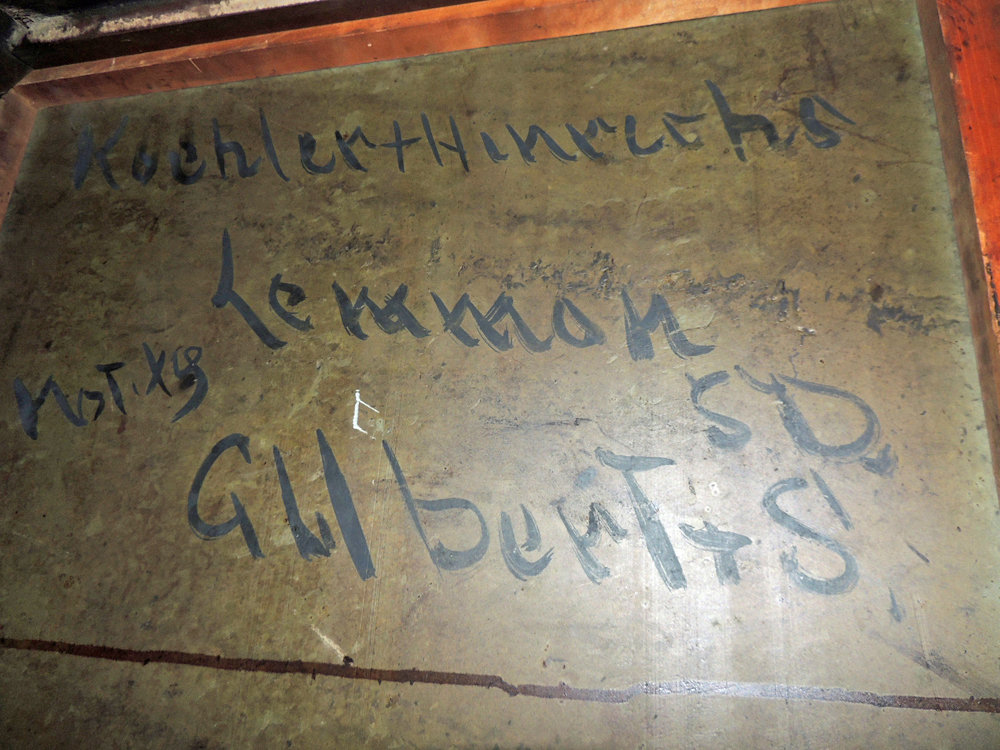 Koehler + Hinrichs
Lemmon
SD.
Gilbert + S